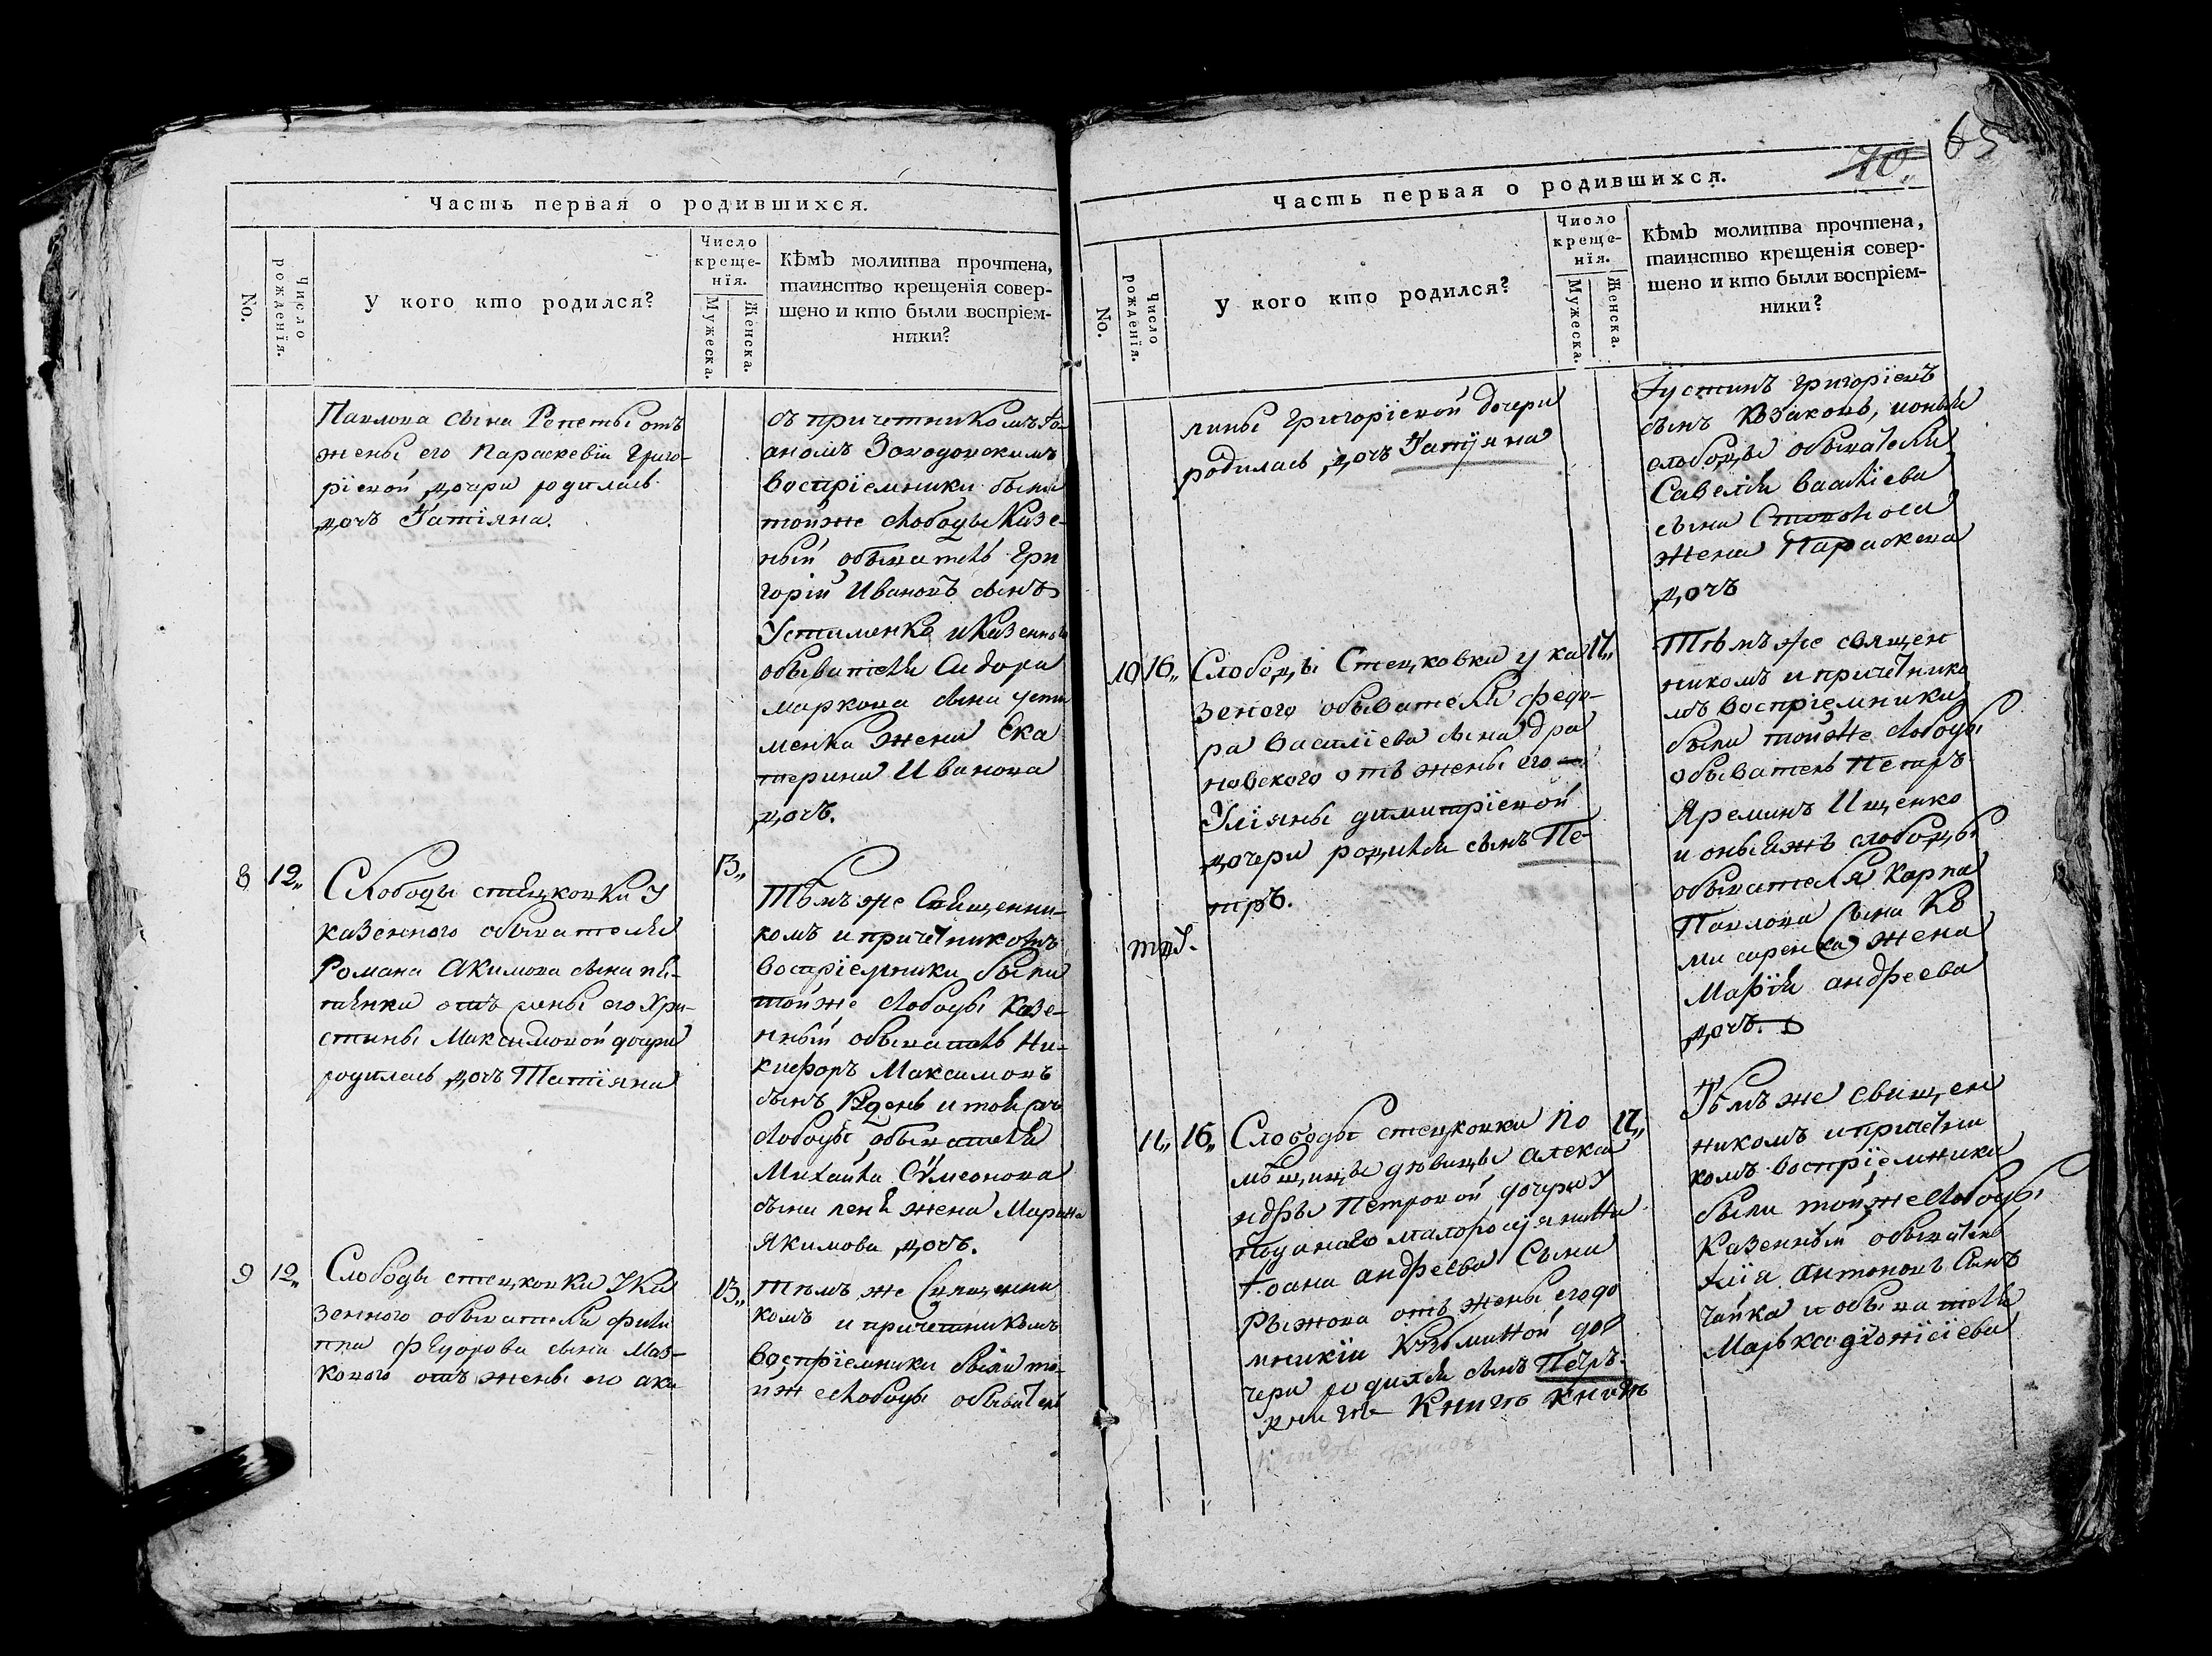 Часть первая о родившихся.
No.
Число рожденія.
У кого кто родился?
Число креще-
нія.
Мужеска.
Женска.
Кѣмъ молитва прочтена,
таинство крещенія совер-
шено и кто были воспріем-
ники?
Павлова сына Репеты отъ
жены его Параскевіи Григо-
ріевой дочери родилась
дочъ Татіяна.
съ причетникомъ Іо-
аномъ
воспріемники были
тойже слободы казе-
ный обыватель Гри
горій Ивановъ сынъ
Устименко и казенного
обывателя Сидора
Маркова сына Усти
менка жена Ека
терина Иванова
дочъ.
8 12,,
Слободы Стецковки У
казенного обывателя
Романа Акимова сына
отъ жены его Хри-
стины Максимовой дочери
родилась дочъ Татіяна
13,,
Тѣмъ же Священни-
комъ и причетникомъ
воспріемники были
тойже слободы казе-
нный обыватель Ни-
кифоръ Максимовъ
сынъ и тойжъ
слободы обывателя
Михайла Сѵмеонова
сына жена Марина
Якимова дочъ.
9 12,,
Слободы Стецковки У ка
зенного обывателя Фили
ппа Федорова сына Маз-
кового отъ жены его аку
13,,
Тѣмъ же Священни
комъ и причетникомъ
воспріемники были то-
йже слободы обыватель
Часть первая о родившихся.
70.
65
No.
Число рожденія.
У кого кто родился?
Число
креще-
нія.
Мужеска.
Женска.
Кѣмъ молитва прочтена,
таинство крещенія совер-
шено и кто были воспріем-
ники?
лины Григоріевой дочери
родилась дочъ Татіяна
Іустинъ Григоріевъ
сынъ Козаковъ, и оныя
слободы обывателя
Савелія Василіева
сына
жена Параскева
дочъ
10 16,,
Слободы Стецковки у ка
зеного обывателя Федо-
ра Василіева сына Дра
новского отъ жены его
Уліяны Димитріевой
дочери родился сынъ Пе-
тръ.
17,,
Тѣмъ же священ
никомъ и причетнико
мъ воспріемники
были тойже слободы
обыватель Петръ
Яреминъ Ищенко
и оныяжъ слободы
обывателя Карпа
Павлова сына Ко
ми саренка жена
Марія Андреева
дочъ.
11,, 16,,
Слободы Стецковки По
мѣщицы дѣвицы Алекса
ндры Петровой дочери У
поданаго малоросіянина
Іоана Андреева Сына
Рыжова отъ жены его До
мникіи Козьминой до
чери родился сынъ Петръ.
книгъ Книгъ книгъ
17,,
Тѣмъ же священ
никомъ и причетни
комъ воспріемники
были той же слободы
казенный обыватель
Илія Антоновъ сынъ
Чайка и обывателя
Марька Діонисіева